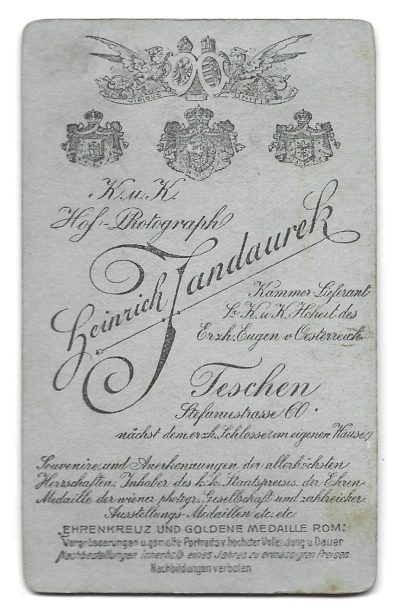 K. u. K.
Hof-Photograph
Heinrich Jandaurek
Kammer-Lieferant
Sr. K. u. K. Hoheit des
Erzh. Eugen v. Oesterreich
Teschen
Stefaniestrasse 60.
nächst dem erzh. Schlosse im eigenen Hause
Souvenire und Anerkennungen der allerhöchsten
Herrschaften, Inhaber des k. k. Staatspreises, der Ehren
Medaille der wiener photogr. Gesellschaft und zahlreicher
Ausstellungs-Medaillen etc. etc.
EHRENKREUZ UND GOLDENE MEDAILLE ROM:
Vergrösserungen u. gemalte Portraits v. höchster Vollendung u. Dauer
Nachbestellungen innerhalb eines Jahres zu ermässigten Preisen
Nachbildungen verboten